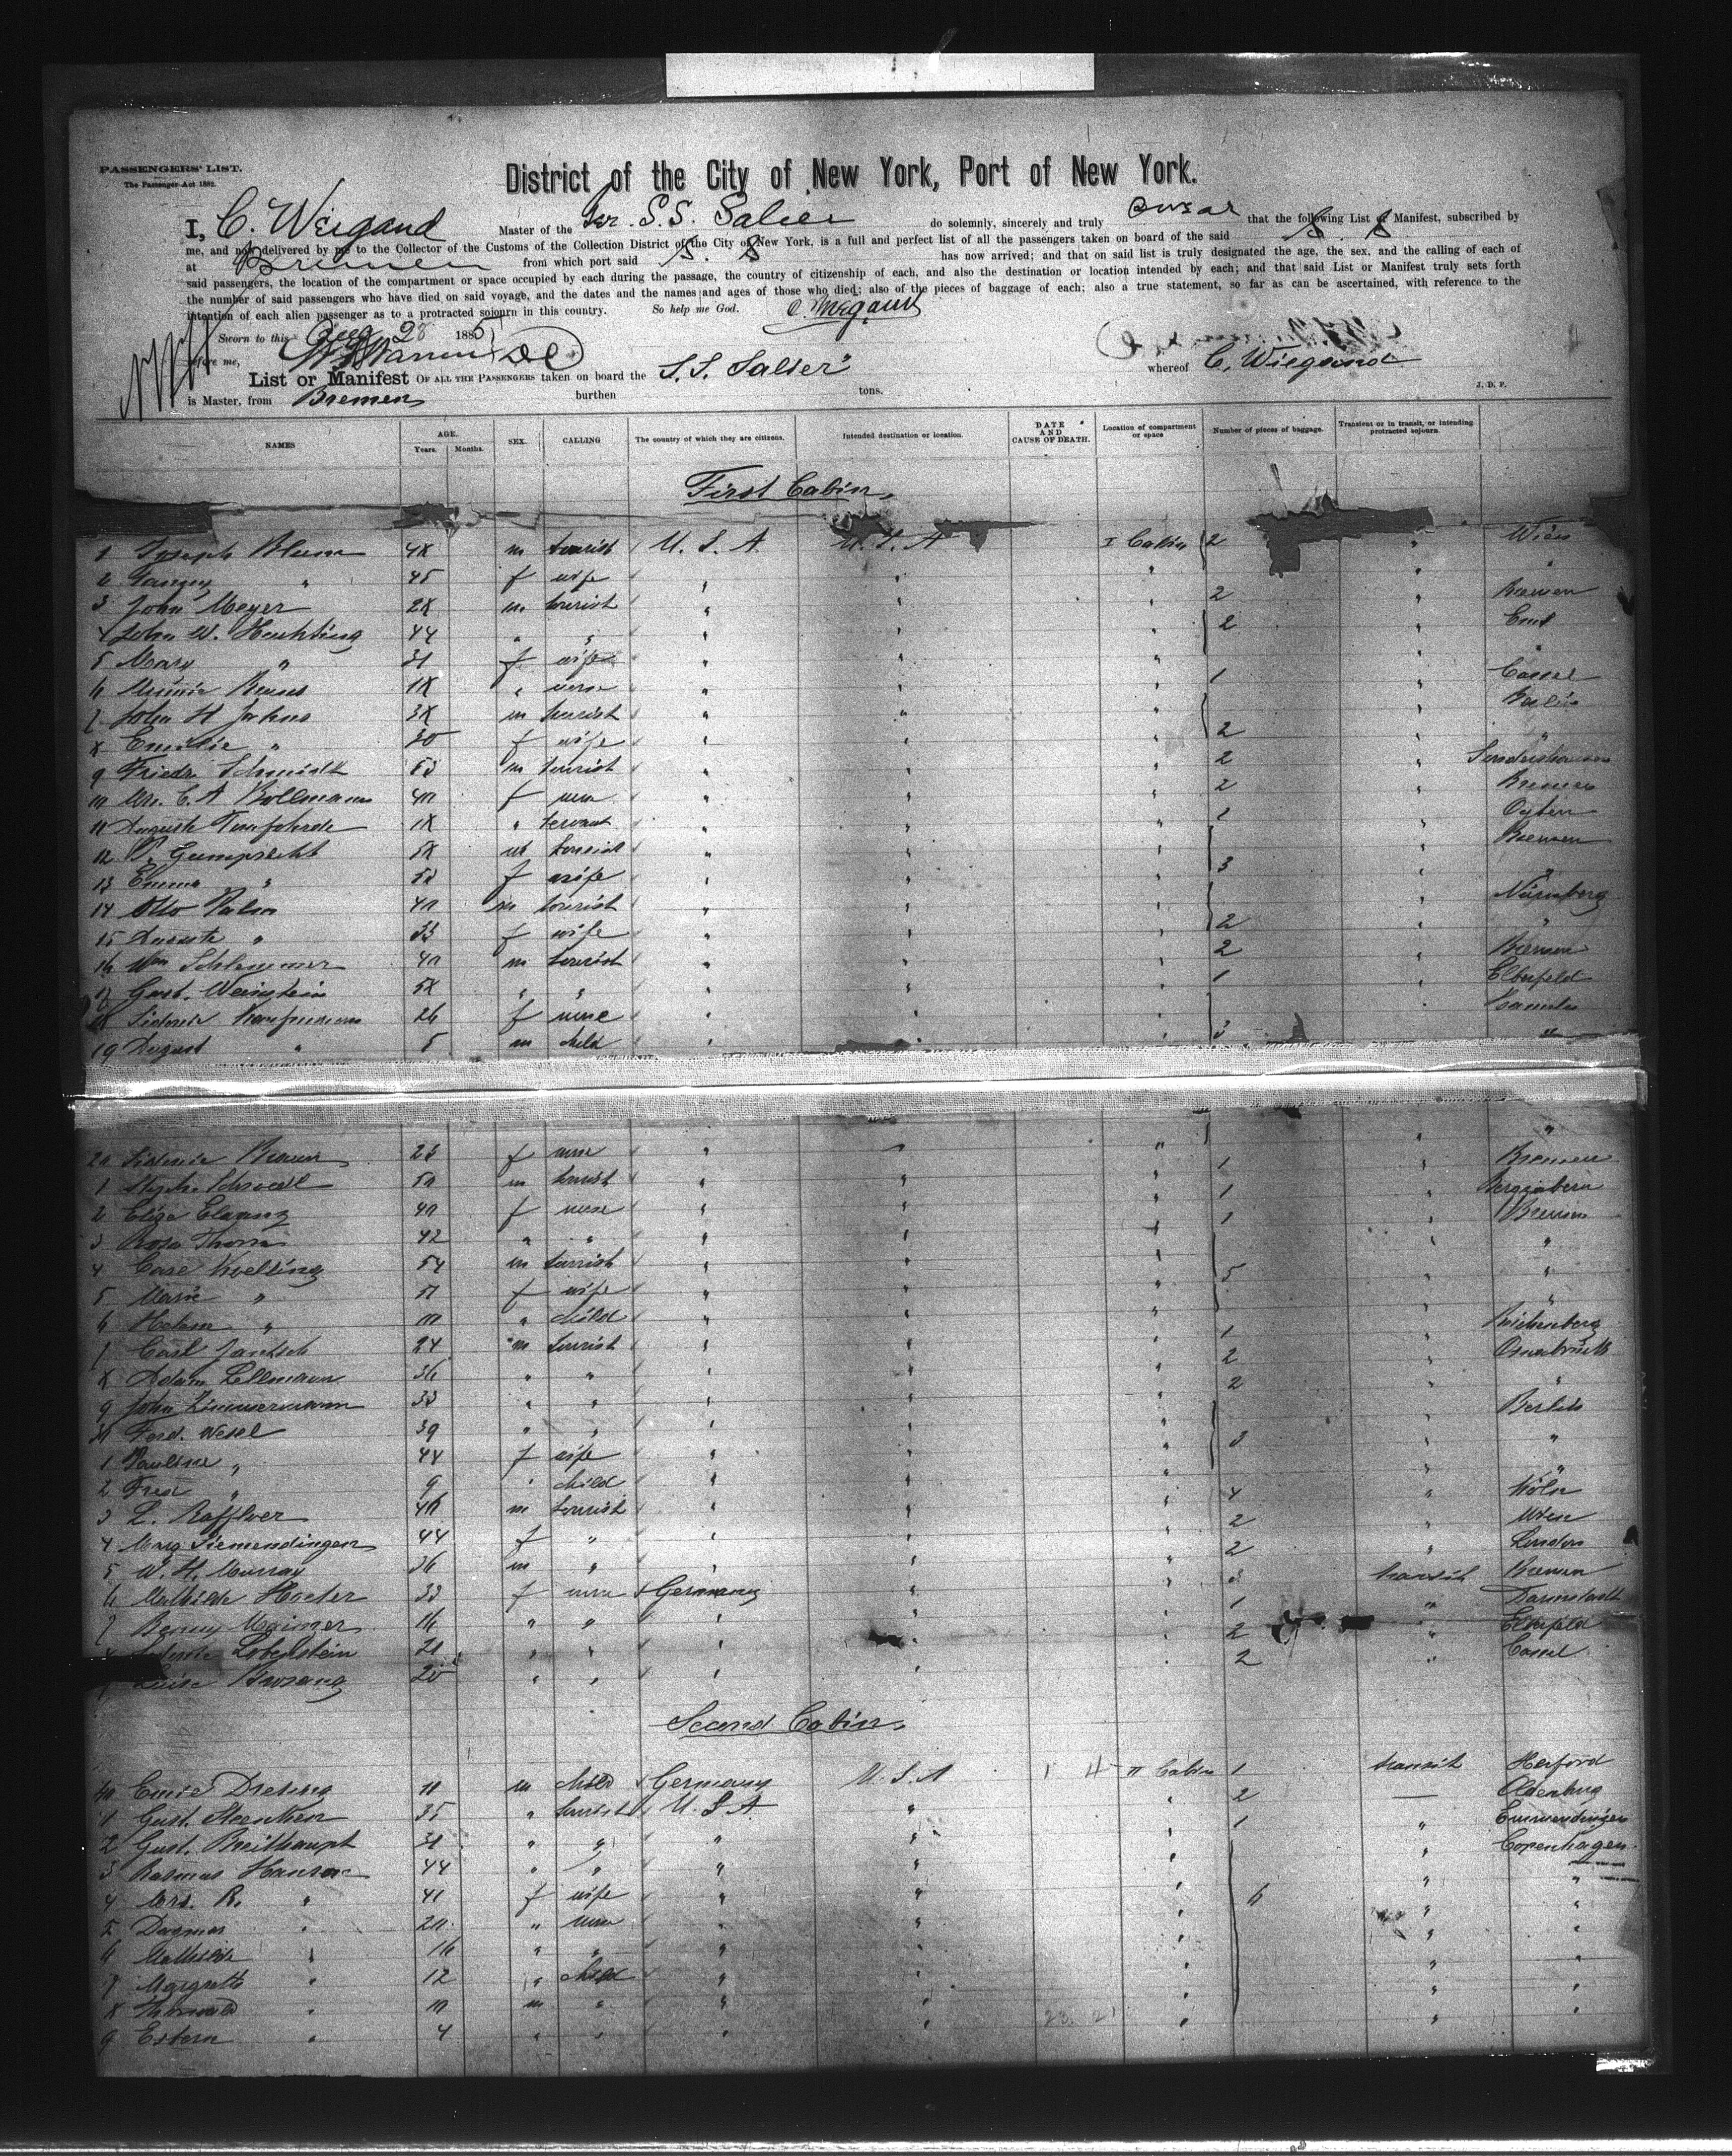 PASSENGERS' LIST.
The Passenger Act 1882.
District of the City of New York, Port of New York.
I, C. Wiegand Master of the Ger. S.S. Salier do solemnly, sincerely and truly swear that the following List or Manifest, subscribed by
me, and now delivered by me to the Collector of the Customs of the Collection District of the City of New York, is a full and perfect list of all the passengers taken on board of the said S. S
at Bremen from which port said S. S has now arrived; and that on said list is truly designated the age, the sex, and the calling of each of
said passengers, the location of the compartment or space occupied by each during the passage, the country of citizenship of each, and also the destination or location intended by each; and that said List or Manifest truly sets forth
the number of said passengers who have died on said voyage, and the dates and the names and ages of those who died; also of the pieces of baggage of each; also a true statement, so far as can be ascertained, with reference to the
intention of each alien passenger as to a protracted sojourn in this country. So help me God. C. Wiegand
Sworn to this Aug 28 1885
before me,
List or Manifest OF ALL THE PASSENGERS taken on board the S.S. Salier whereof C. Wiegand
is Master, from Bremen burthen tons. J. D. F.
NAMES AGE. Years. Months. SEX. CALLING The country of which they are citizens. Intended destination or location. DATE AND CAUSE OF DEATH. Location of compartment or space Number of pieces of baggage. Transient or in transit, or intending protracted sojourn.
First Cabin
1 Joseph Blum 48 m tourist U. S. A. U. S. A I Cabin 2 " Wien
2 Fanny " 45 f wife " " " " "
3 John Meyer 28 m tourist " " " 2 " Bremen
4 John W. 44 " " " " " 2 " Ems
5 Mary " 31 f wife " " " " "
6 Minnie 18 " nurse " " " 1 " Cassel
7 John H Jahns 38 m tourist " " " " Berlin
8 Emilie " 30 f wife " " " 2 " "
9 Friedr. Schmidt 53 m tourist " " " 2 " Sondershausen
10 Mrs. C. A Bollmann 40 f none " " " 2 " Bremen
11 Auguste 18 " servant " " " 1 "
12 Gumprecht 58 m tourist " " " " Bremen
13 Emma " 52 f wife " " " 3 " "
14 Otto 40 m tourist " " " " Nürnberg
15 Auguste " 33 f wife " " " 2 " "
16 Wm Schlemmer 40 m tourist " " " 2 " Bremen
17 Gust. Weinstein 58 " " " " " 1 " Elberfeld
18 Sidonie Kaufmann 26 f none " " " "
19 August " 5 m child " " " 3 " "
20 Sidonie Braun 23 f none " " " " "
1 Steph. 50 m tourist " " " 1 " Bremen
2 Elise 40 f none " " " 1 " Bergzabern
3 Rosa Thoma 42 " " " " " 1 " Bremen
4 Carl Koelling 54 m tourist " " " " "
5 Marie " f wife " " " 5 " "
6 Helene " 10 " child " " " " "
7 Carl Jantsch 24 m tourist " " " 1 " Reichenberg
8 Adam Lellmann 36 " " " " " 2 " Osnabrück
9 John Zimmermann 33 " " " " " 2 " "
30 Ferd. Wesel 39 " " " " " " Berlin
1 Pauline " 44 f wife " " " 3 " "
2 " 9 " child " " " " "
3 L. m tourist " " " 4 " Köln
4 Mary 44 f " " " " 2 " Wien
5 W. H. Murray 36 m " " " " 2 " London
6 Mathilde 33 f none Germany " " 3 transit Bremen
7 16 " " " " 1 " Darmstadt
8 Lobenstein 21 " " " " 2 " Elberfeld
9 Luise 20 " " " " 2 " Cassel
Second Cabin
40 11 m child Germany U. S. A II Cabin 1 transit Herford
1 Gust. 35 " tourist U. S. A " " 2 — Oldenburg
2 Gust. Breithaupt 31 " " " " " 1 " Emmendingen
3 Rasmus Hansen 44 " " " " " " Copenhagen
4 Mrs. R. " 41 f wife " " " 6 " "
5 Dagmar " 20 " none " " " " "
6 Mathilde " 16 " " " " " " "
7 Margrethe " 12 " child " " " " "
8 Thorwald " 10 m " " " " " "
9 " 4 " " " " " " "